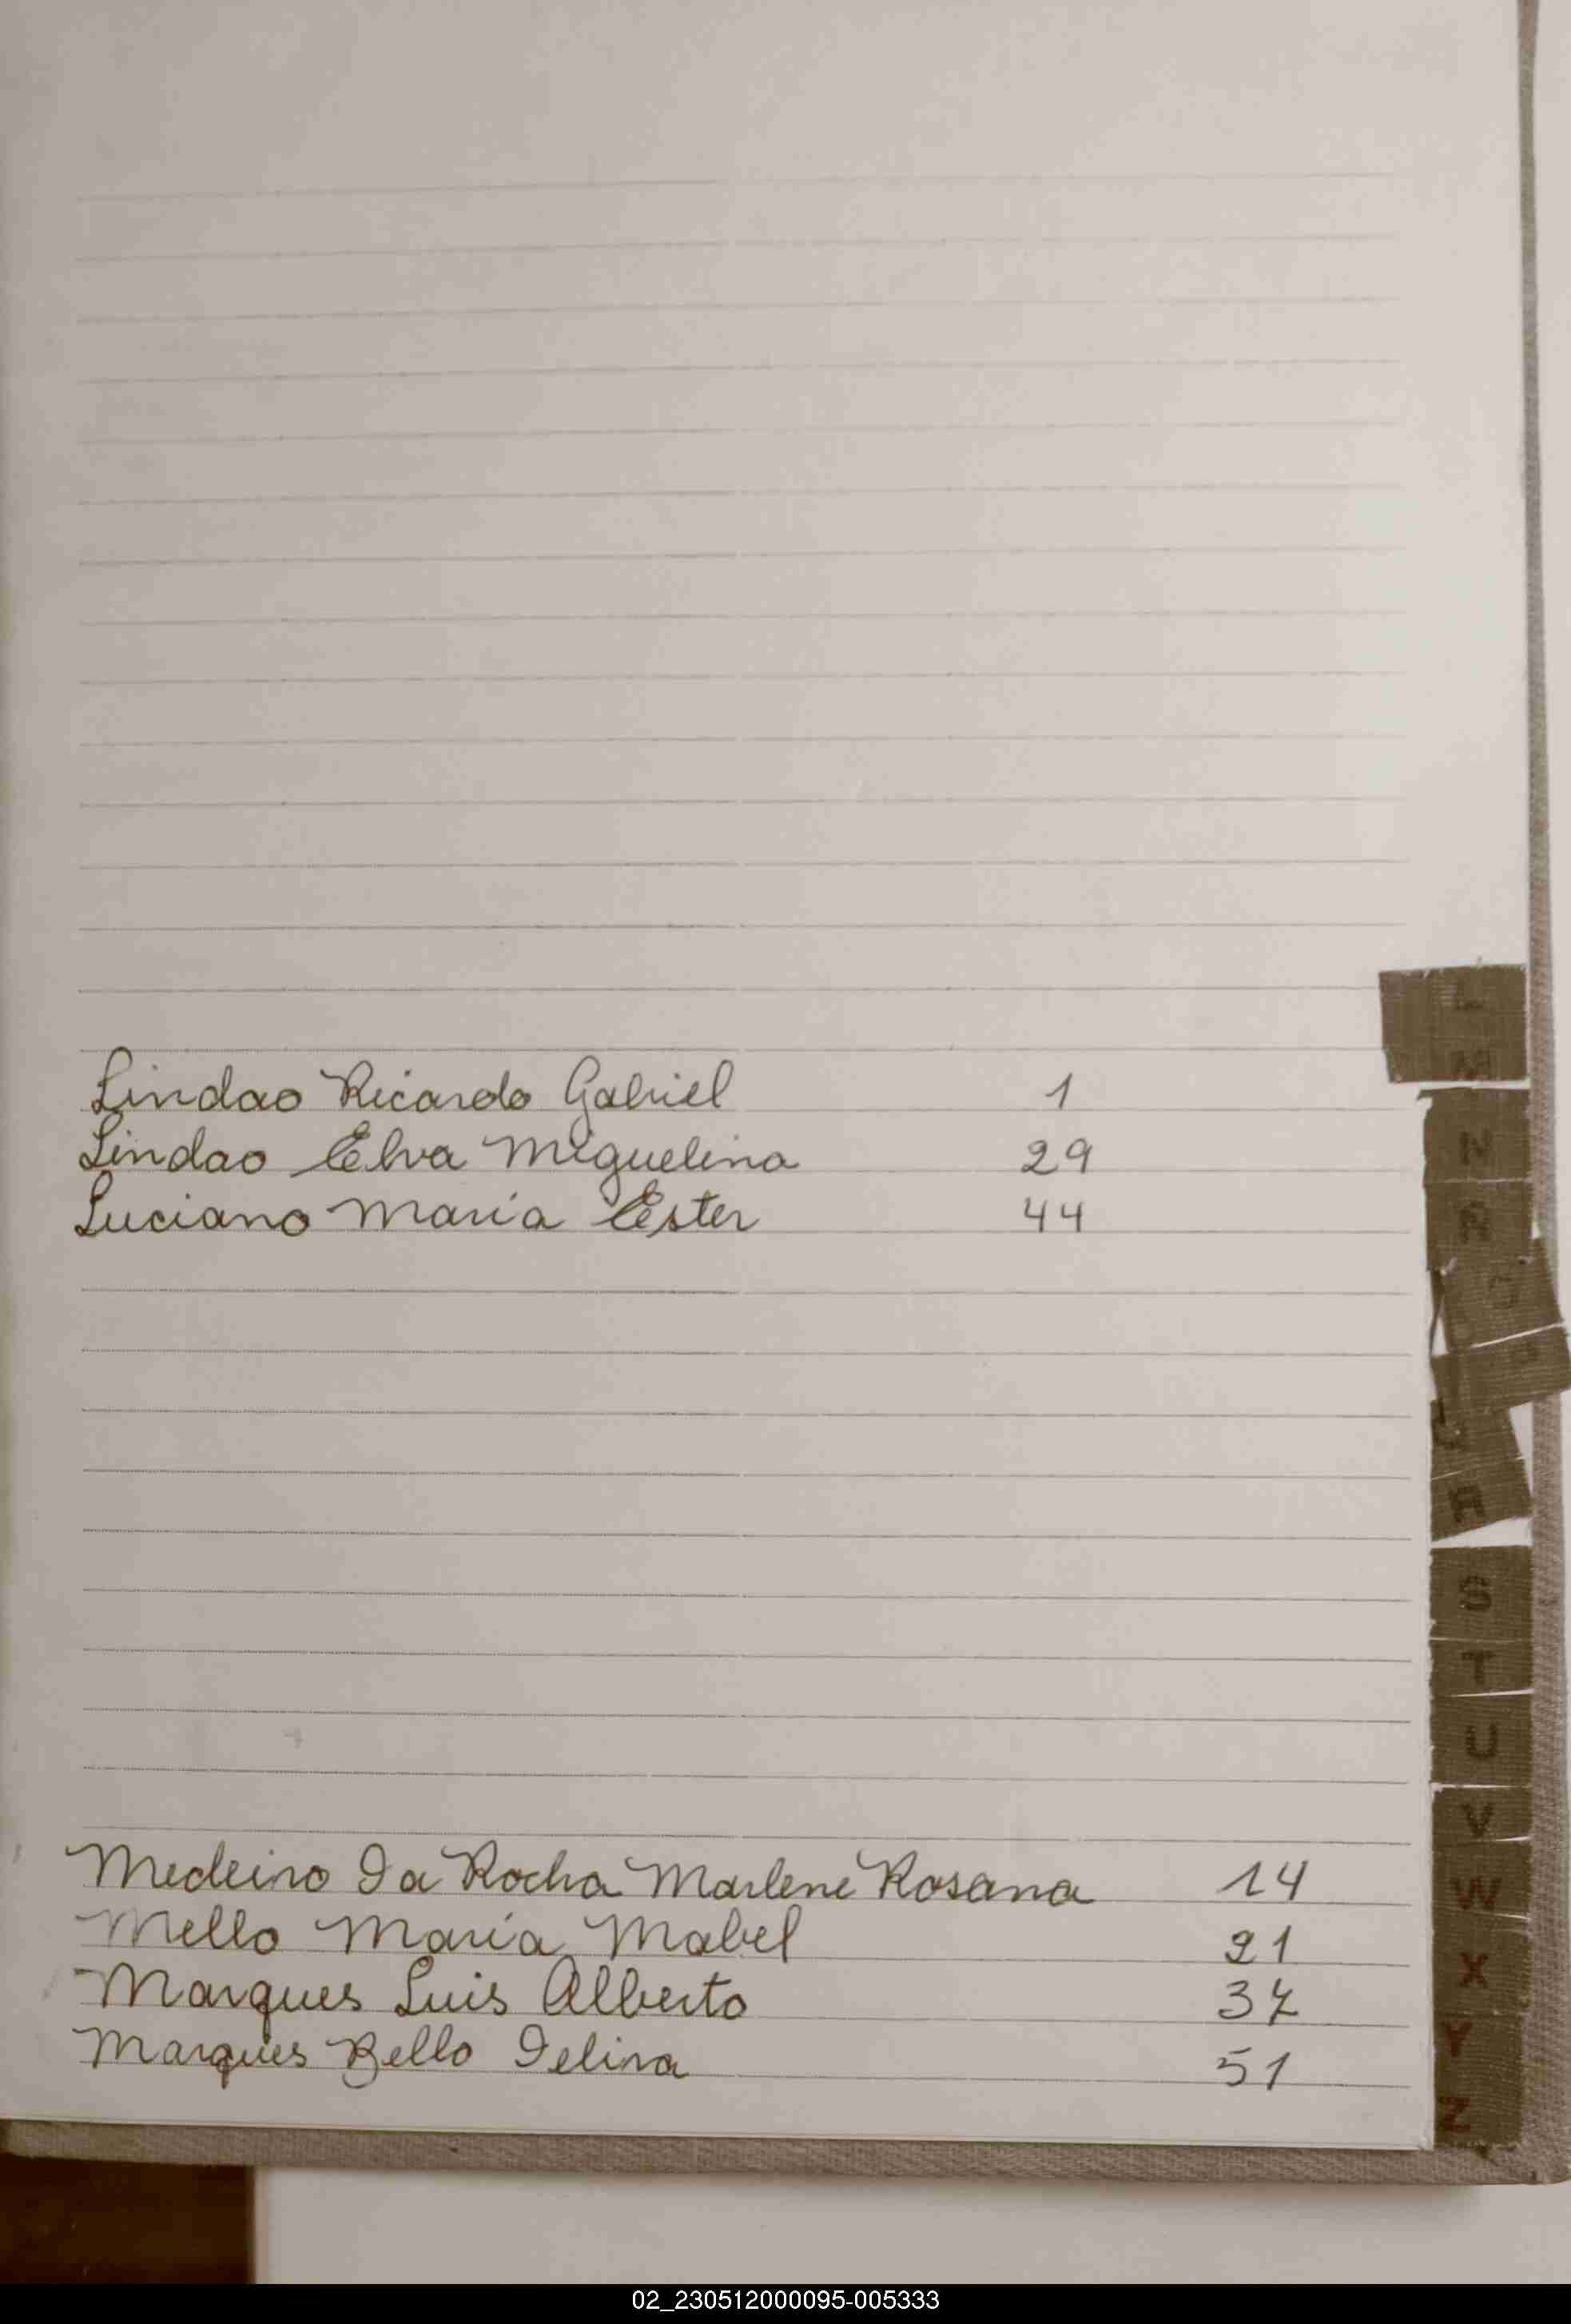 Lindao Ricardo Gabriel 1
Lindao Elva Miguelina 29
Luciano María Ester 44
Medeiro Da Rocha Marlene Rosana 14
Mello María Mabel 21
Marques Luis Alberto 37
Marques Bello Delina 51
L
M
N
Ñ
O
P
R
S
T
U
V
W
X
Y
Z
02_230512000095-005333